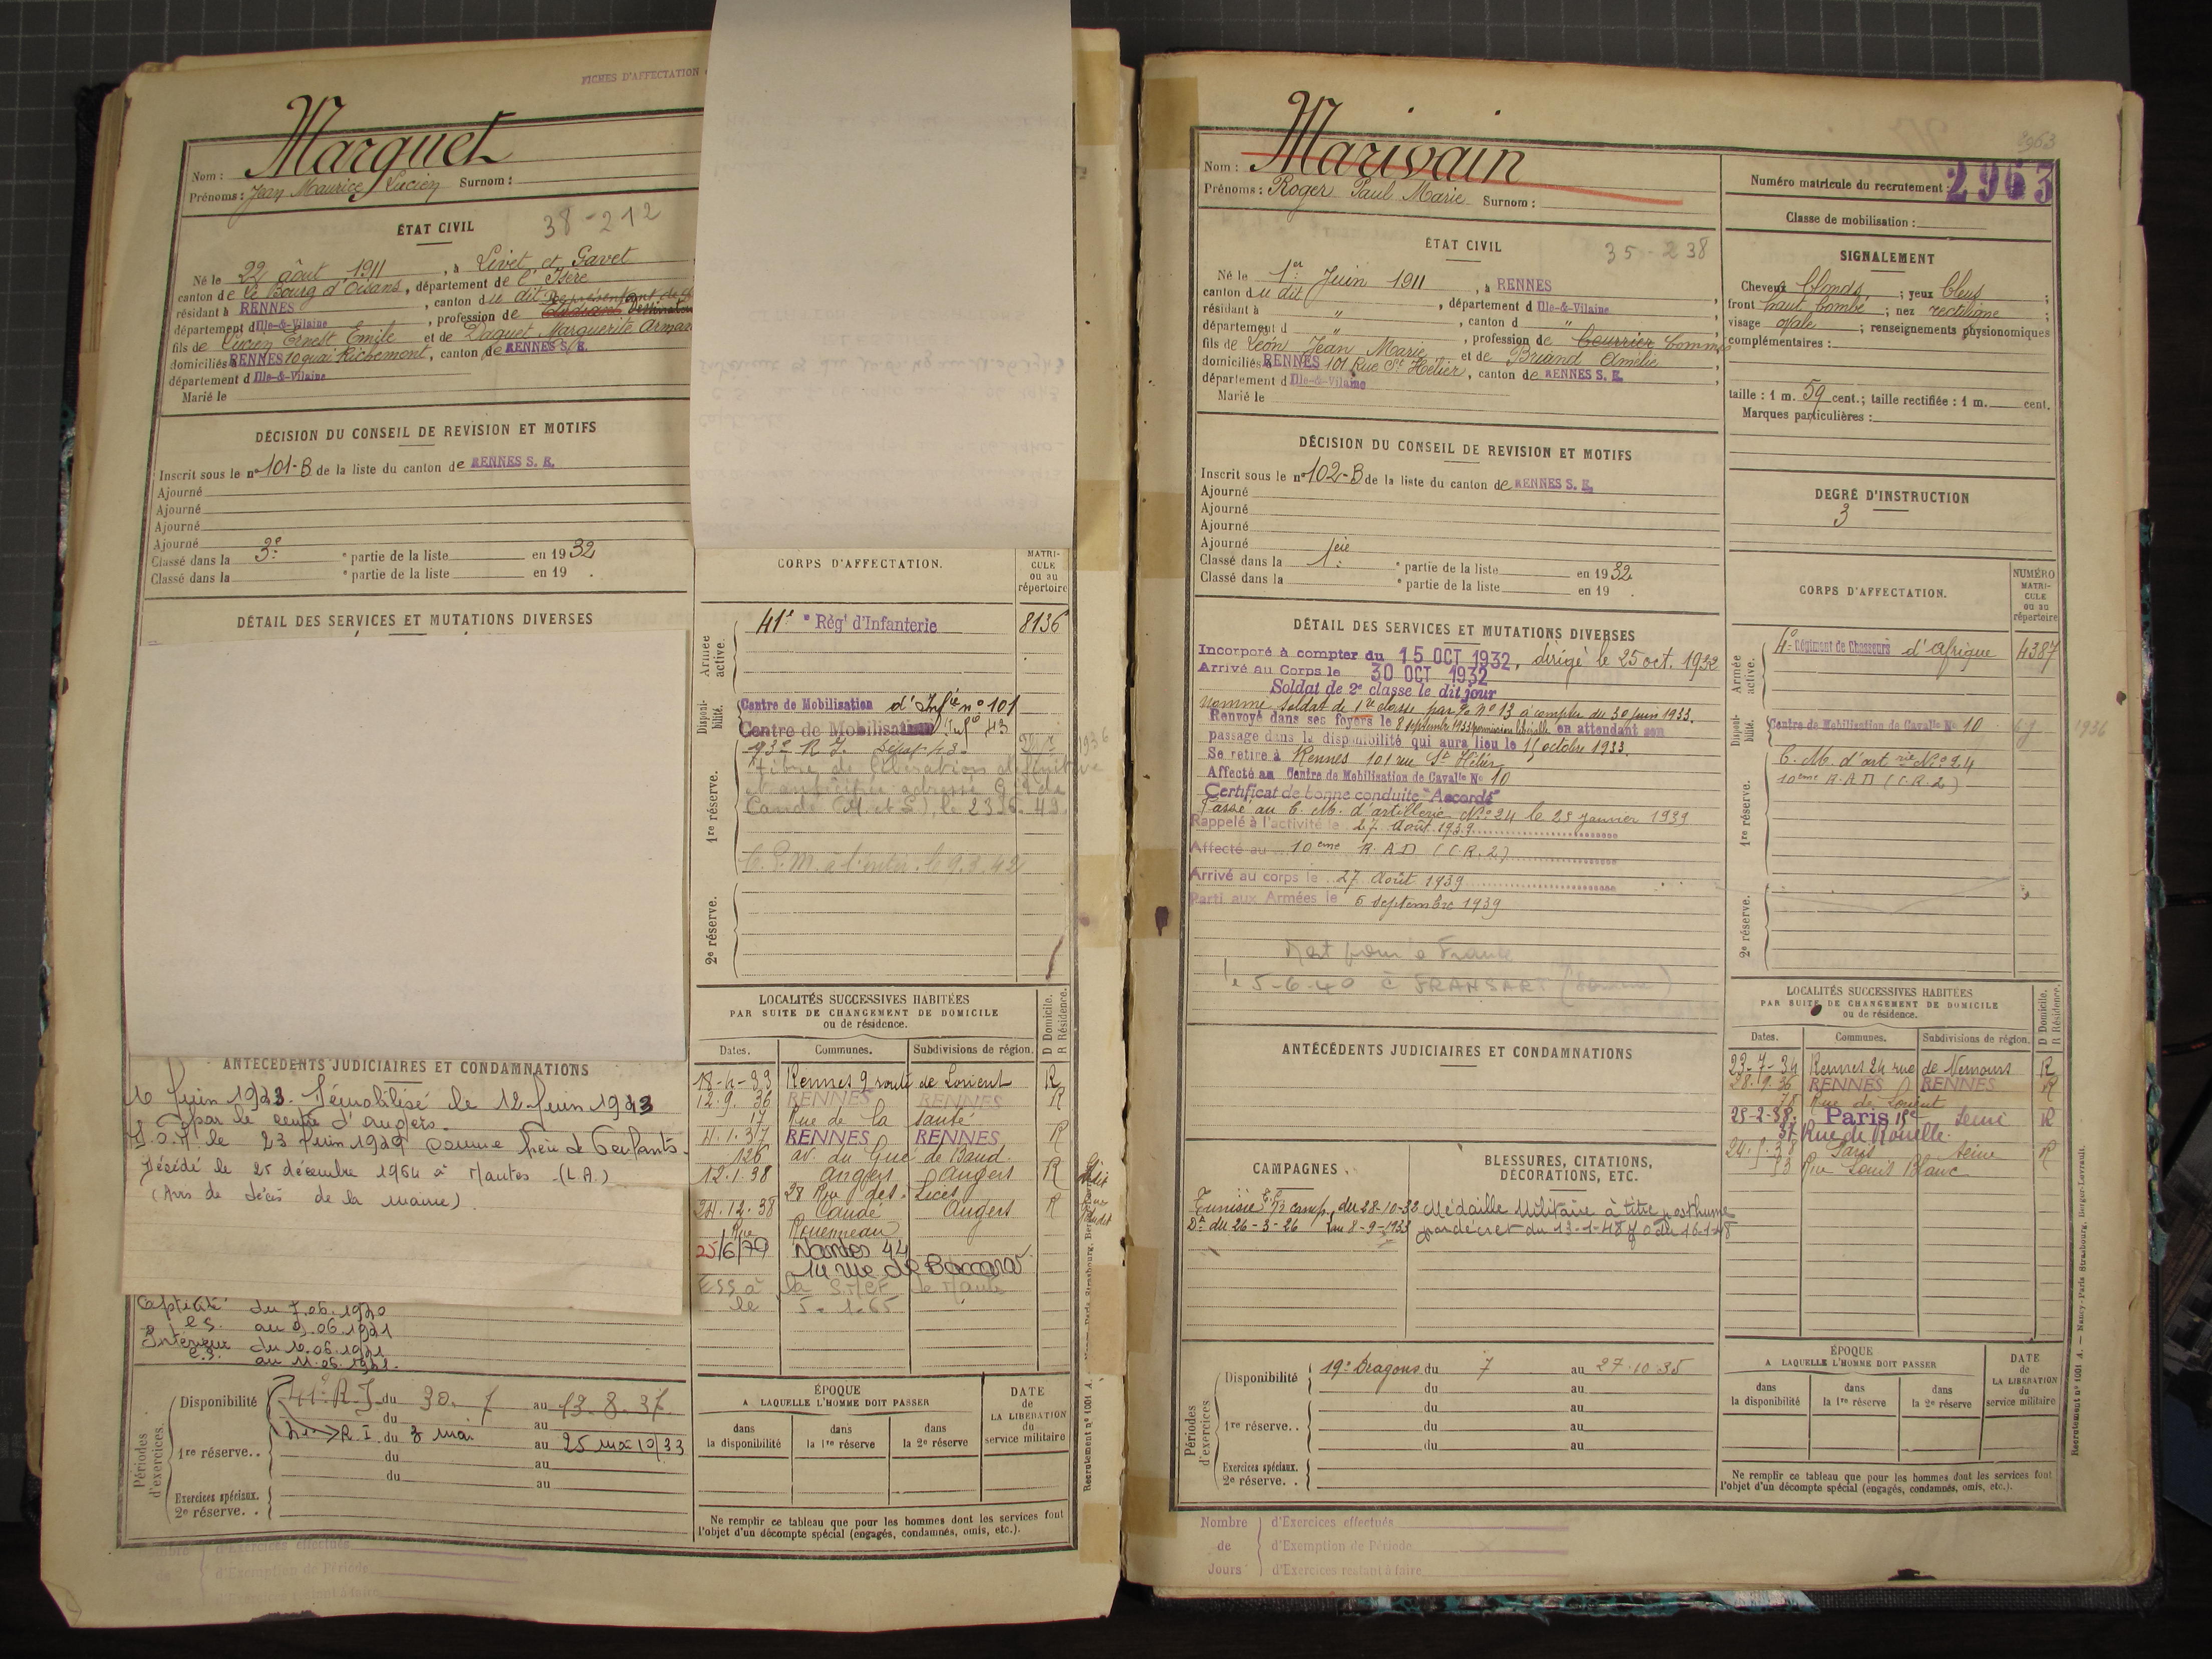 FICHES D'AFFECTATION
Nom : Marquet
Prénoms : Jean Maurice Lucien Surnom :
ÉTAT CIVIL 38-212
Né le 22 août 1911, à Livet et Gavet
canton de Le Bourg d'Oisans, département de l'Isère
résidant à RENNES, canton du dit
département d Ille-&-Vilaine, profession de
fils de Lucien Ernest Emile et de Daquet Marguerite
domiciliés RENNES 10 quai Richemont, canton de RENNES S. E.
département d Ille-&-Vilaine
Marié le
DÉCISION DU CONSEIL DE REVISION ET MOTIFS
Inscrit sous le n° 101-B de la liste du canton de RENNES S. E.
Ajourné
Ajourné
Ajourné
Ajourné
Classé dans la 3e ° partie de la liste en 1932
Classé dans la ° partie de la liste en 19 .
DÉTAIL DES SERVICES ET MUTATIONS DIVERSES
ANTÉCÉDENTS JUDICIAIRES ET CONDAMNATIONS
par le centre d'angers.
le 23 Juin 1949 comme père de
Décédé le 25 décembre 1964 à Nantes (L.A.)
(Avis de décès de la mairie)
Captivité du 7.06.1940
au 9.06.1941
Intérieur du 10.06.1941
au 11.06.1941.
Périodes d'exercices
Disponibilité 41e R.I. du 30. 7 au 13. 8. 37.
du au
1re réserve.. R.I. du 3 mai au 25 mai
du au
du au
Exercices spéciaux.
2e réserve. .
Nombre de Jours
d'Exercices effectués
d'Exemption de Période
d'Exercices restant à faire
CORPS D'AFFECTATION.
MATRICULE ou au répertoire
Armée active.
41e ° Rég' d'Infanterie 8136
Disponibilité.
Centre de Mobilisation d'Infie n° 101
Centre de Mobilisation Infie 43
1re réserve.
Candé (M et L), le
2e réserve.
LOCALITÉS SUCCESSIVES HABITÉES
PAR SUITE DE CHANGEMENT DE DOMICILE
ou de résidence.
D Domicile. R Résidence.
Dates. Communes. Subdivisions de région.
18-4-33 Rennes 9 route de Lorient R
12.9.36 RENNES RENNES R
17 Rue de la Santé
4.1.37 RENNES RENNES R
126 av. du Gué de Baud.
12.1.38 Angers Angers R
28 Rue des Lices
24.12.38 Candé Angers R
Rue
25/6/79 Nantes 44
14 rue de
le 5-1-65
ÉPOQUE
A LAQUELLE L'HOMME DOIT PASSER
DATE de LA LIBÉRATION du service militaire
dans la disponibilité
dans la 1re réserve
dans la 2e réserve
Ne remplir ce tableau que pour les hommes dont les services font
l'objet d'un décompte spécial (engagés, condamnés, omis, etc.).
Recrutement n° 1001 A.
Nom : Marivain
Prénoms : Roger Paul Marie Surnom :
Numéro matricule du recrutement : 2963
2963
Classe de mobilisation :
ÉTAT CIVIL 35-238
Né le 1er Juin 1911, à RENNES
canton du dit, département d Ille-&-Vilaine
résidant à ", canton d "
département d ", profession de
fils de Léon Jean Marie et de Briand Amélie
domiciliés RENNES 101 Rue St Hélier, canton de RENNES S. E.
département d Ille-&-Vilaine
Marié le
SIGNALEMENT
Cheveux blonds ; yeux bleus ;
front haut bombé ; nez rectiligne ;
visage ovale ; renseignements physionomiques
complémentaires :
taille : 1 m. 59 cent.; taille rectifiée : 1 m. cent.
Marques particulières :
DÉCISION DU CONSEIL DE REVISION ET MOTIFS
Inscrit sous le n° 102-B de la liste du canton de RENNES S. E.
Ajourné
Ajourné
Ajourné
Ajourné
Classé dans la 1ère ° partie de la liste en 1932
Classé dans la ° partie de la liste en 19 .
DEGRÉ D'INSTRUCTION
3
DÉTAIL DES SERVICES ET MUTATIONS DIVERSES
Incorporé à compter du 15 OCT 1932, dirigé le 25 oct. 1932
Arrivé au Corps le 30 OCT 1932
Soldat de 2e classe le dit jour
Nommé soldat de 1re classe par O. N° 13 à compter du 30 juin 1933.
Renvoyé dans ses foyers le 8 septembre 1933 permission libérable en attendant son
passage dans la disponibilité qui aura lieu le 15 octobre 1933.
Se retire à Rennes 101 rue St Hélier
Affecté au Centre de Mobilisation de Cavalie N° 10
Certificat de bonne conduite "Accordé"
Passé au C. M. d'artillerie N° 24 le 25 janvier 1939
Rappelé à l'activité le 27 Août 1939
Affecté au 10ème R.A.D (C.R.2)
Arrivé au corps le 27 Août 1939
Parti aux Armées le 6 septembre 1939
Mort pour la France
le 5-6-40 à FRANSART (Somme)
CORPS D'AFFECTATION.
NUMÉRO MATRICULE ou au répertoire
Armée active.
4e Régiment de Chasseurs d'Afrique 4387
Disponibilité.
Centre de Mobilisation de Cavalie N° 10 1936
1re réserve.
C. M. d'artrie N° 24
10ème R.A.D (C.R.2)
2e réserve.
ANTÉCÉDENTS JUDICIAIRES ET CONDAMNATIONS
LOCALITÉS SUCCESSIVES HABITÉES
PAR SUITE DE CHANGEMENT DE DOMICILE
ou de résidence.
D Domicile. R Résidence.
Dates. Communes. Subdivisions de région.
23-7-34 Rennes 24 rue de Nemours R
28.9.36 RENNES RENNES R
78 Rue de Lorient
25-2-38. Paris 15e Seine R
37 Rue de Rouelle.
Paris Seine R
53 Rue Louis Blanc
CAMPAGNES
BLESSURES, CITATIONS,
DÉCORATIONS, ETC.
Tunisie 1/2 camp. du 28-10-32
Dt du 26-3-26 au 8-9-1933
Médaille Militaire à titre posthume
par décret du 13-1-48 J.O. du 16-1-48
Périodes d'exercices
Disponibilité 19e Dragons du 7 au 27.10.35
du au
du au
1re réserve.. du au
du au
Exercices spéciaux.
2e réserve. .
ÉPOQUE
A LAQUELLE L'HOMME DOIT PASSER
DATE de LA LIBÉRATION du service militaire
dans la disponibilité
dans la 1re réserve
dans la 2e réserve
Ne remplir ce tableau que pour les hommes dont les services font
l'objet d'un décompte spécial (engagés, condamnés, omis, etc.).
Nombre de Jours
d'Exercices effectués
d'Exemption de Période
d'Exercices restant à faire
Recrutement n° 1001 A. — Nancy-Paris Strasbourg, Berger-Levrault.